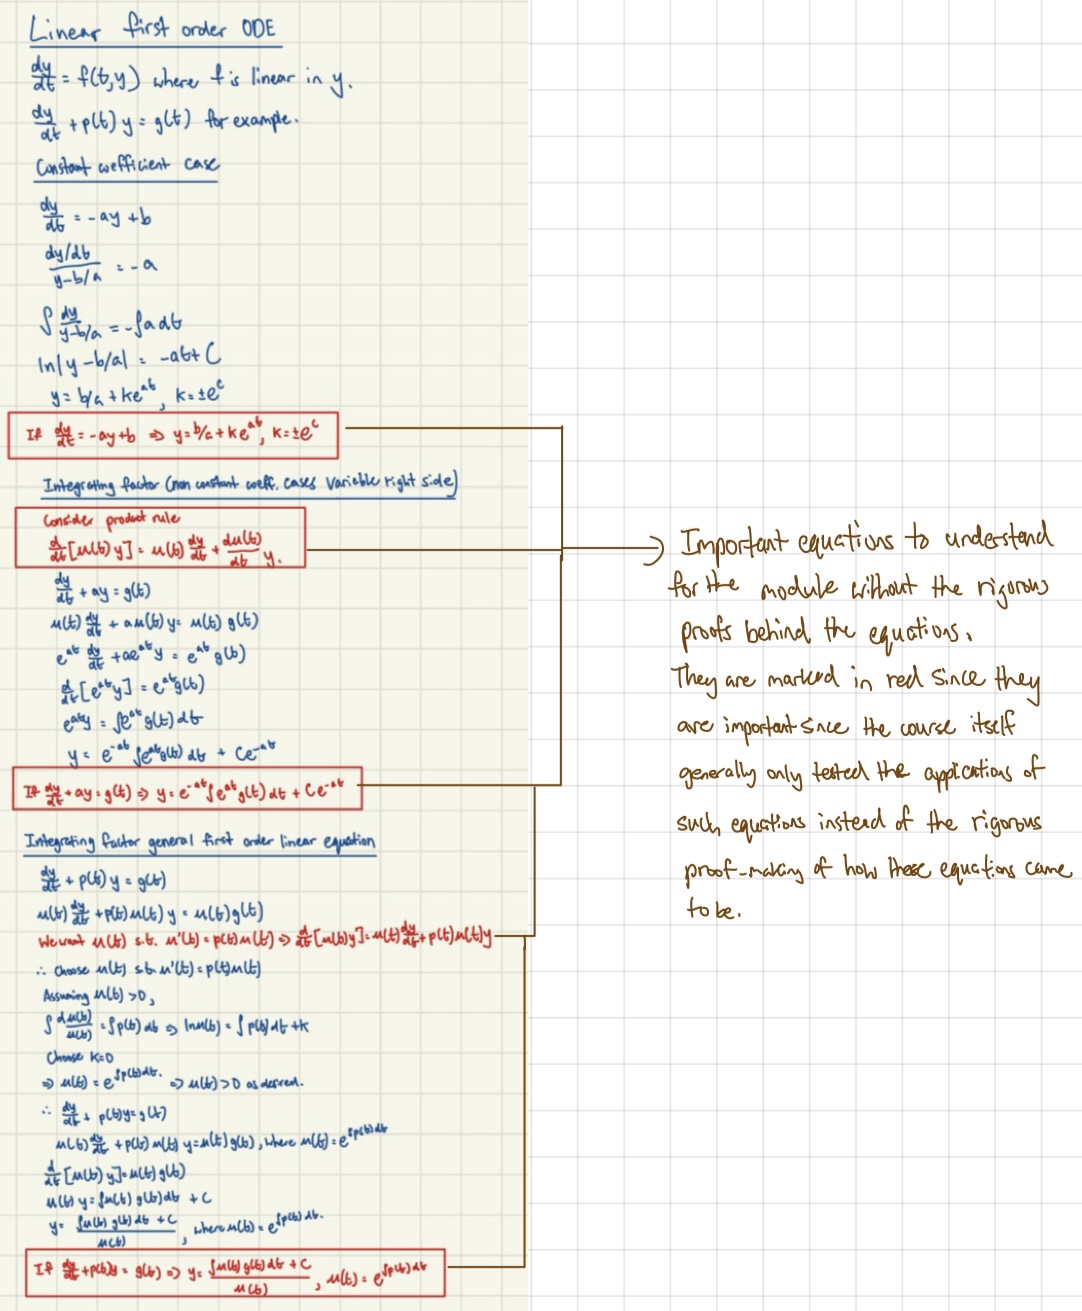 Linear first order ODE
dy/dt = f(t,y) where f is linear in y.
dy/dt + p(t) y = g(t) for example.
Constant coefficient case
dy/dt = -ay + b
(dy/dt)/(y-b/a) = -a
∫ dy/(y-b/a) = -∫a dt
ln|y-b/a| = -at + C
y = b/a + ke^at, k = ±e^c
If dy/dt = -ay+b ⇒ y = b/a + ke^at, k = ±e^c
Integrating factor (non constant coeff. cases variable right side)
Consider product rule
d/dt[μ(t) y] = μ(t) dy/dt + dμ(t)/dt y.
dy/dt + ay = g(t)
μ(t) dy/dt + aμ(t) y = μ(t) g(t)
e^at dy/dt + ae^at y = e^at g(t)
d/dt[e^at y] = e^at g(t)
e^at y = ∫e^at g(t) dt
y = e^-at ∫e^at g(t) dt + Ce^-at
If dy/dt + ay = g(t) ⇒ y = e^-at ∫e^at g(t) dt + Ce^-at
Integrating factor general first order linear equation
dy/dt + p(t) y = g(t)
μ(t) dy/dt + p(t) μ(t) y = μ(t) g(t)
We want μ(t) s.t. μ'(t) = p(t) μ(t) ⇒ d/dt[μ(t) y] = μ(t) dy/dt + p(t) μ(t) y
∴ Choose μ(t) s.t. μ'(t) = p(t) μ(t)
Assuming μ(t) > 0,
∫ dμ(t)/μ(t) = ∫p(t) dt ⇒ ln μ(t) = ∫p(t) dt + k
Choose k=0
⇒ μ(t) = e^∫p(t) dt. ⇒ μ(t) > 0 as desired.
∴ dy/dt + p(t) y = g(t)
μ(t) dy/dt + p(t) μ(t) y = μ(t) g(t), where μ(t) = e^∫p(t) dt
d/dt[μ(t) y] = μ(t) g(t)
μ(t) y = ∫μ(t) g(t) dt + C
y = (∫μ(t) g(t) dt + C)/μ(t), where μ(t) = e^∫p(t) dt.
If dy/dt + p(t) y = g(t) ⇒ y = (∫μ(t) g(t) dt + C)/μ(t), μ(t) = e^∫p(t) dt
Important equations to understand
for the module without the rigorous
proofs behind the equations.
They are marked in red since they
are important since the course itself
generally only tested the applications of
such equations instead of the rigorous
proof-making of how these equations came
to be.